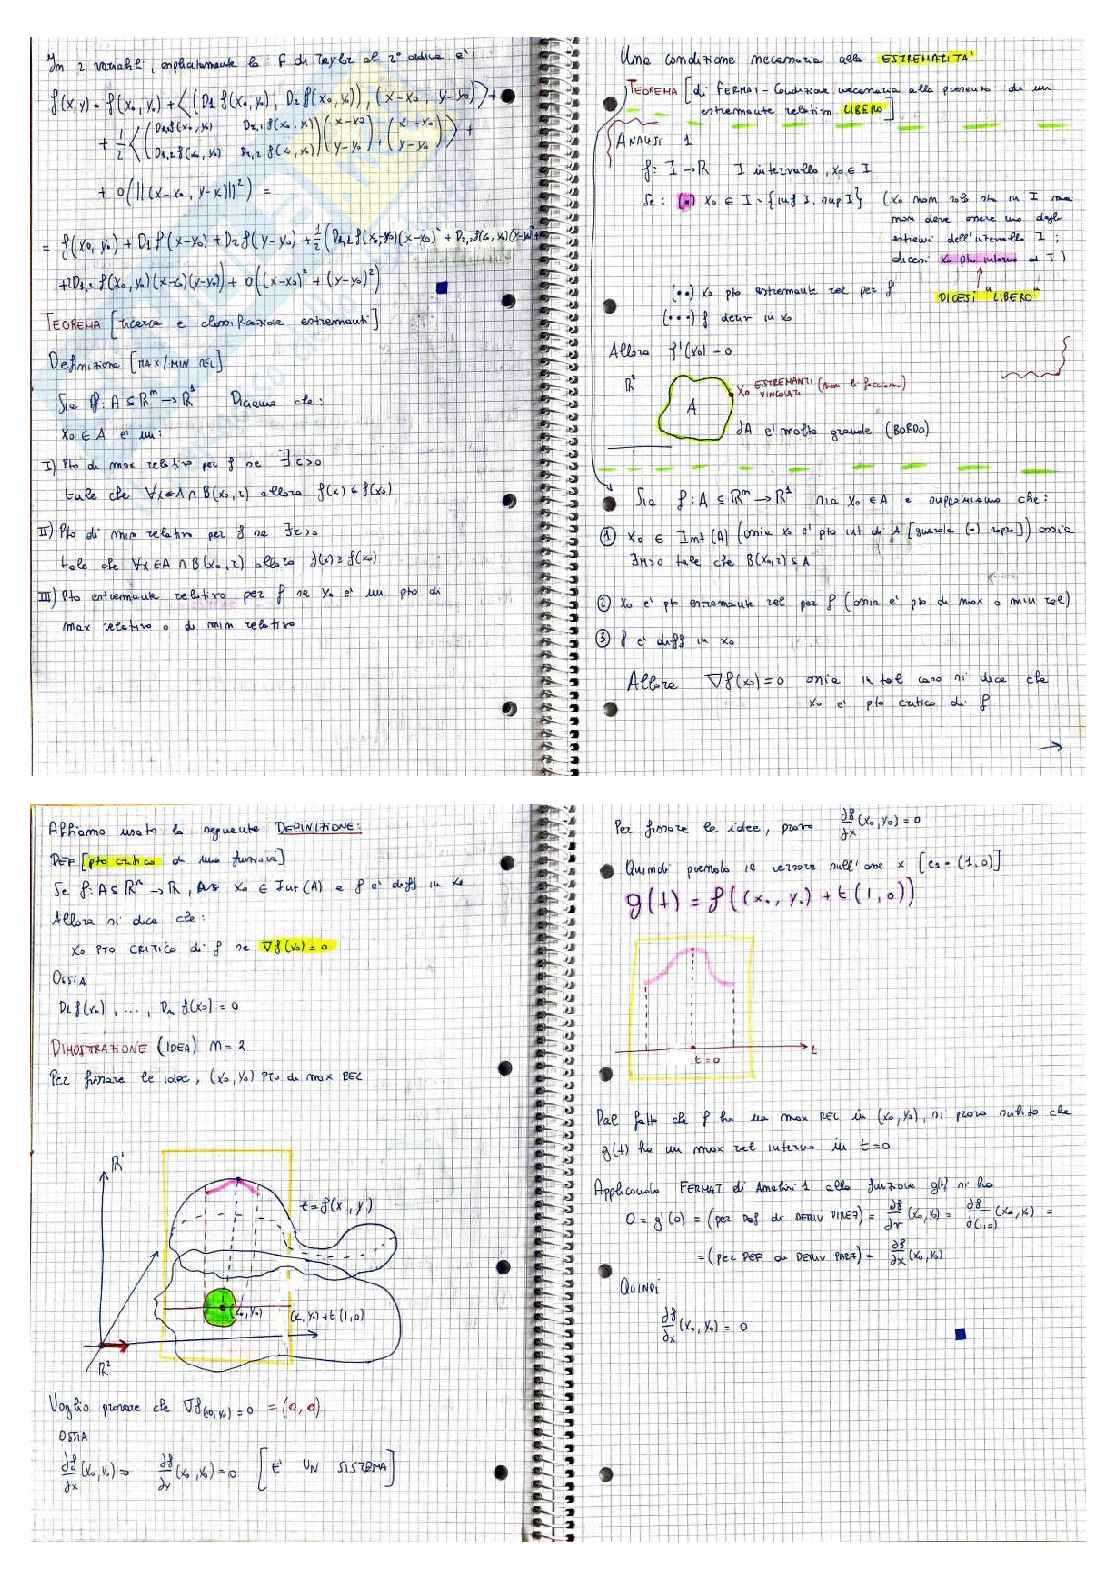 In 2 variabili, esplicitamente la F di Taylor al 2° ordine è
f(x,y) = f(x₀,y₀) + ⟨(D₁f(x₀,y₀), D₂f(x₀,y₀)), (x-x₀, y-y₀)⟩ +
+ 1/2 ⟨( D₁,₁f(x₀,y₀) D₂,₁f(x₀,y₀) ) ( x-x₀ ) , ( x-x₀ )⟩ +
( D₁,₂f(x₀,y₀) D₂,₂f(x₀,y₀) ) ( y-y₀ ) ( y-y₀ )
+ o(||(x-x₀, y-y₀)||²) =
= f(x₀,y₀) + D₁f(x-x₀) + D₂f(y-y₀) + 1/2 (
+ o((x-x₀)² + (y-y₀)²)
TEOREMA [ricerca e classificazione estremanti]
Definizione [MAX/MIN REL]
Sia f: A ⊆ ℝⁿ → ℝ¹ Diciamo che:
x₀ ∈ A è un:
I) Pto di max relativo per f se ∃r>0
tale che ∀x∈A∩B(x₀,r) allora f(x) ≤ f(x₀)
II) Pto di min relativo per f se ∃r>0
tale che ∀x∈A∩B(x₀,r) allora f(x) ≥ f(x₀)
III) Pto estremante relativo per f se x₀ è un pto di
max relativo o di min relativo
Una condizione necessaria alla ESTREMALITÀ
TEOREMA [di FERMAT - Condizione necessaria alla presenza di un
estremante relativo LIBERO]
ANALISI 1
f: I → ℝ I intervallo, x₀ ∈ I
Se: (•) x₀ ∈ I \ {inf I, sup I} (x₀ non solo sta in I ma
non deve essere uno degli
estremi dell'intervallo I;
dicesi x₀ pto interno a I)
(••) x₀ pto estremante rel per f
DICESI "LIBERO"
(•••) f deriv in x₀
Allora f'(x₀) = 0
ℝ²
A
x₀ ESTREMANTI VINCOLATI (non lo facciamo)
∂A è molto grande (BORDO)
Sia f: A ⊆ ℝⁿ → ℝ¹ sia x₀ ∈ A e supponiamo che:
① x₀ ∈ Int(A) (ossia x₀ è pto int di A [guarda (•) sopra]) ossia
∃r>0 tale che B(x₀,r) ⊆ A
② x₀ è pt estremante rel per f (ossia è pto di max o min rel)
③ f è diff in x₀
Allora ∇f(x₀)=0 ossia in tal caso si dice che
x₀ è pto critico di f
→
Abbiamo usato la seguente DEFINIZIONE:
DEF [pto critico di una funzione]
Se f: A⊆ℝⁿ → ℝ, x₀ ∈ Int(A) e f è diff in x₀
Allora si dice che:
x₀ PTO CRITICO di f se ∇f(x₀) = 0
OSSIA
D₁f(x₀), ..., Dₙf(x₀) = 0
DIMOSTRAZIONE (IDEA) n = 2
Per fissare le idee, (x₀,y₀) PTO di max REL
ℝ¹
z = f(x,y)
(x₀,y₀)
(x₀,y₀) + t(1,0)
ℝ²
Voglio provare che ∇f(x₀,y₀) = 0 = (0,0)
OSSIA
∂f/∂x (x₀,y₀) = 0 ∂f/∂y (x₀,y₀) = 0 [È UN SISTEMA]
Per fissare le idee, provo ∂f/∂x (x₀,y₀) = 0
Quindi prendo il versore sull'asse x [e₁ = (1,0)]
g(t) = f((x₀,y₀) + t(1,0))
t=0
t
Dal fatto che f ha un max REL in (x₀,y₀), si prova subito che
g(t) ha un max rel interno in t=0
Applicando FERMAT di Analisi 1 alla funzione g(t) si ha
0 = g'(0) = (per Def di DERIV DIREZ) = ∂f/∂v (x₀,y₀) = ∂f/∂(1,0) (x₀,y₀) =
= (PER DEF di DERIV PARZ) = ∂f/∂x (x₀,y₀)
QUINDI
∂f/∂x (x₀,y₀) = 0